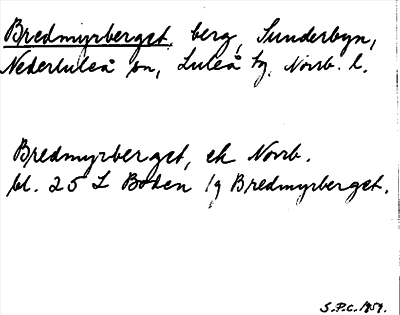 Bredmyrberget, berg, Sunderbyn,
Nederluleå sn, Luleå tg, Norrb. l.
Bredmyrberget, ek Norrb.
bl. 25 L Boden 1g Bredmyrberget.
S.P.C. 1959.